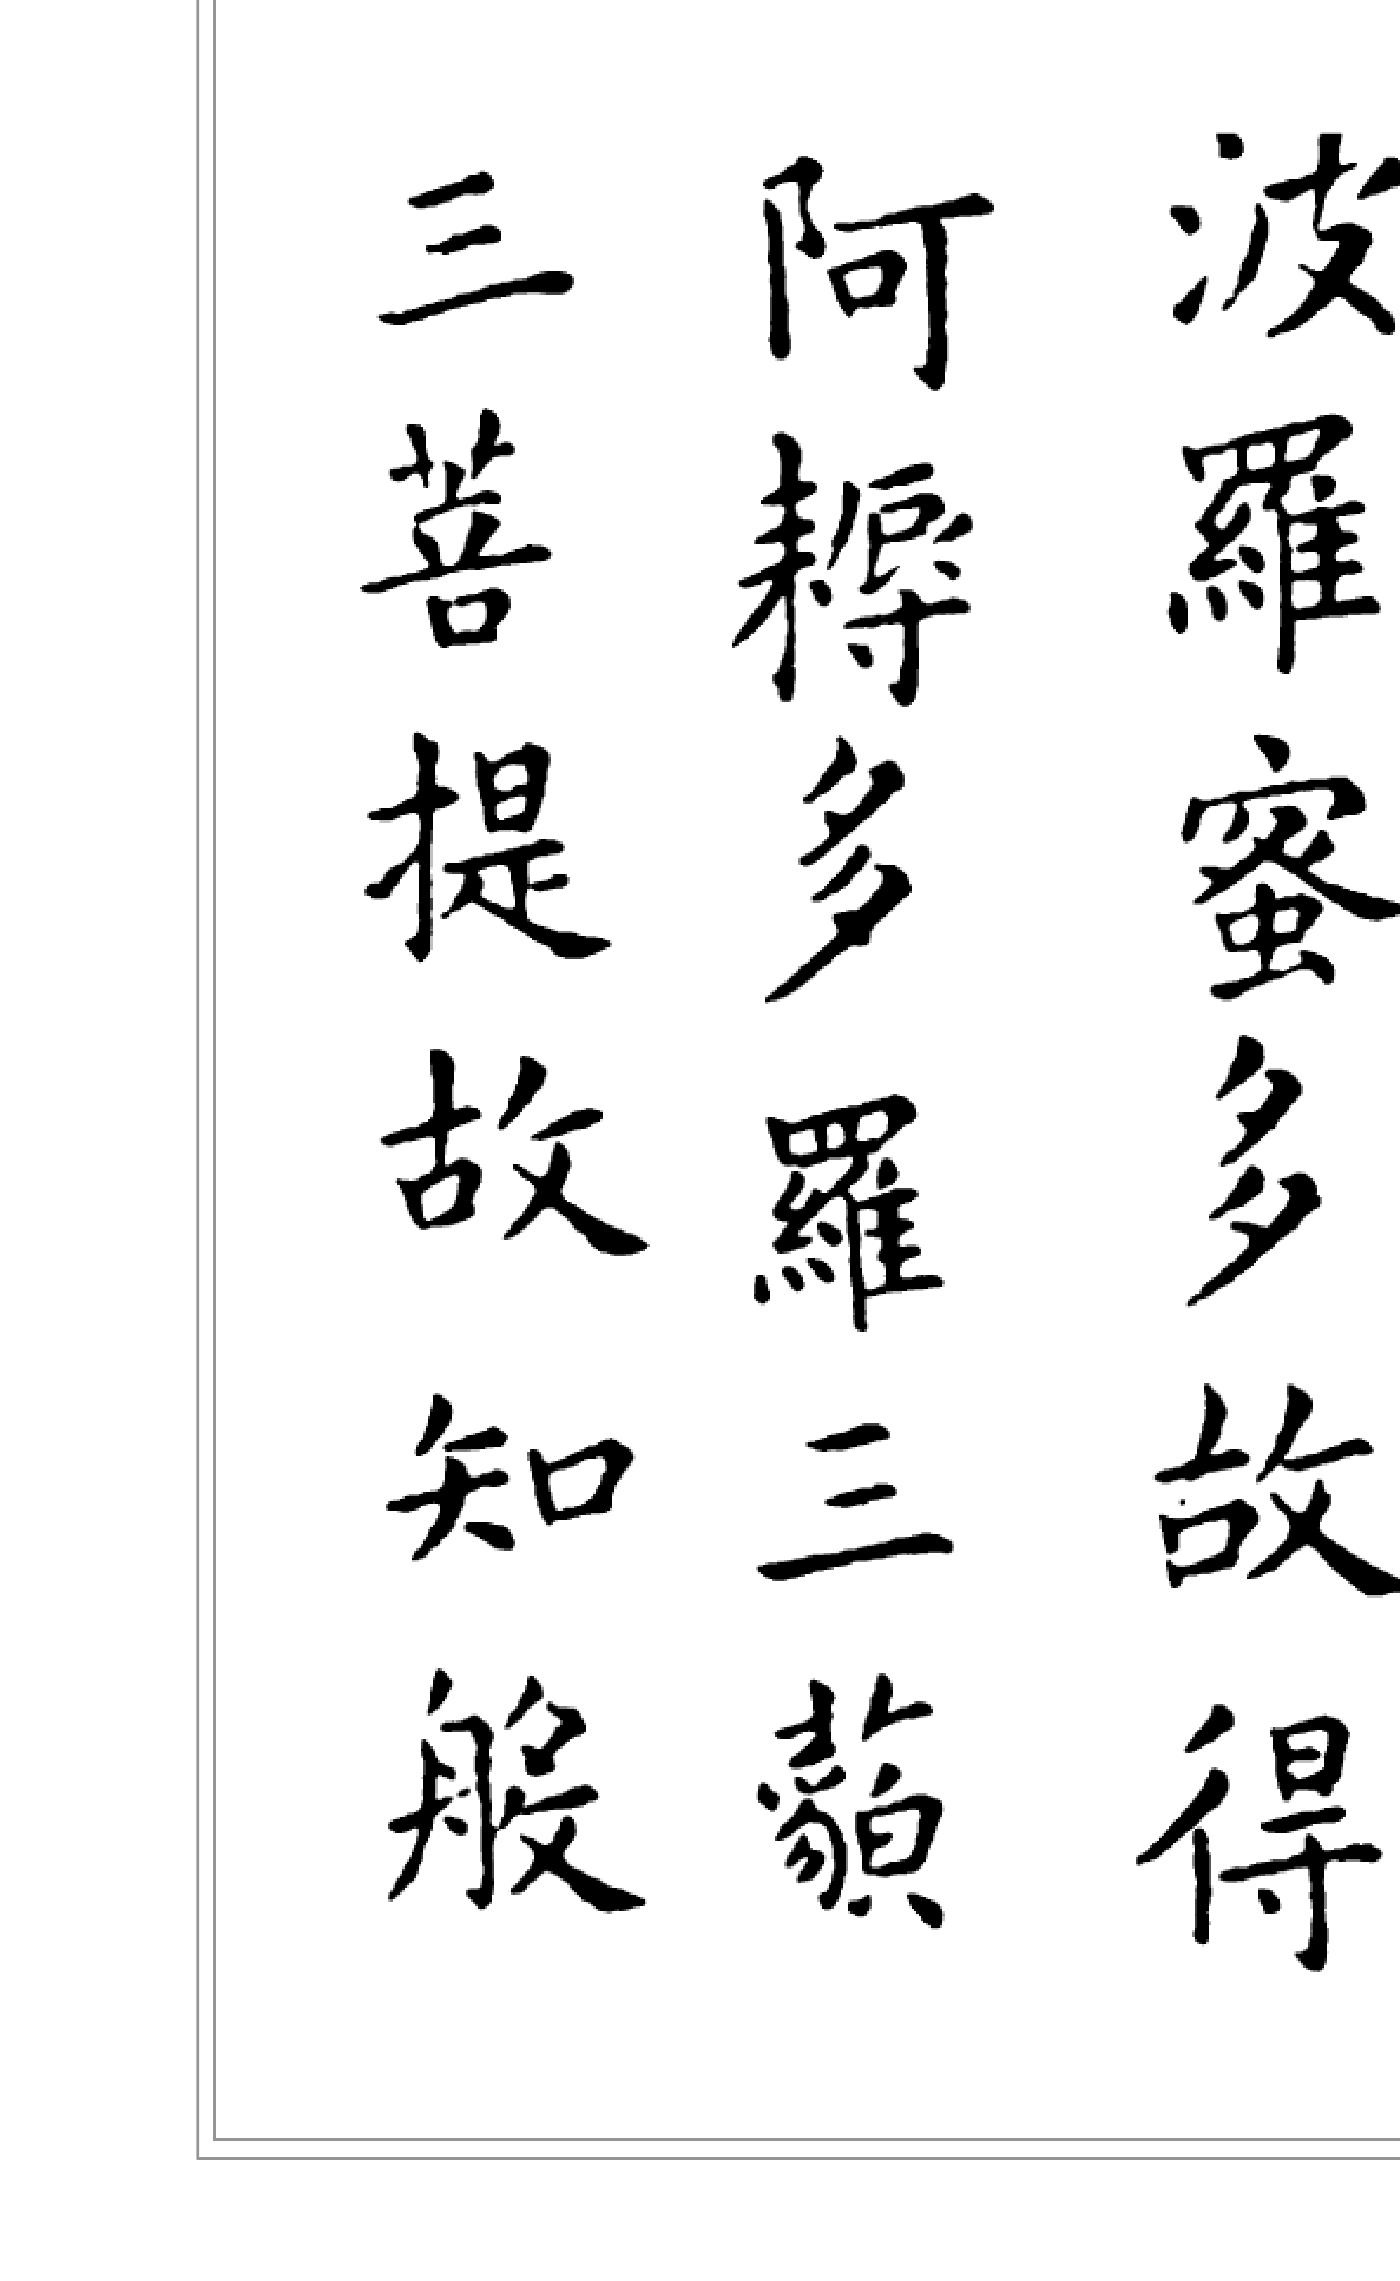 波羅蜜多故得
阿耨多羅三藐
三菩提故知般